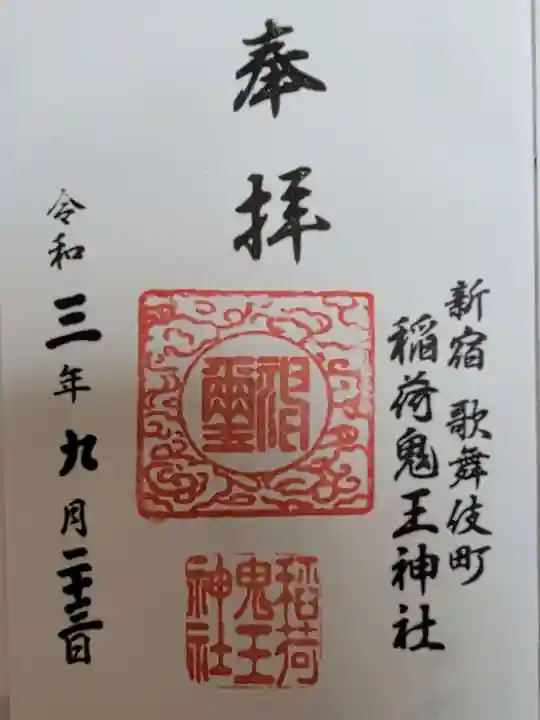 新宿 歌舞伎町
稲荷鬼王神社
奉拝
稲荷
鬼王
神社
令和三年九月二十三日